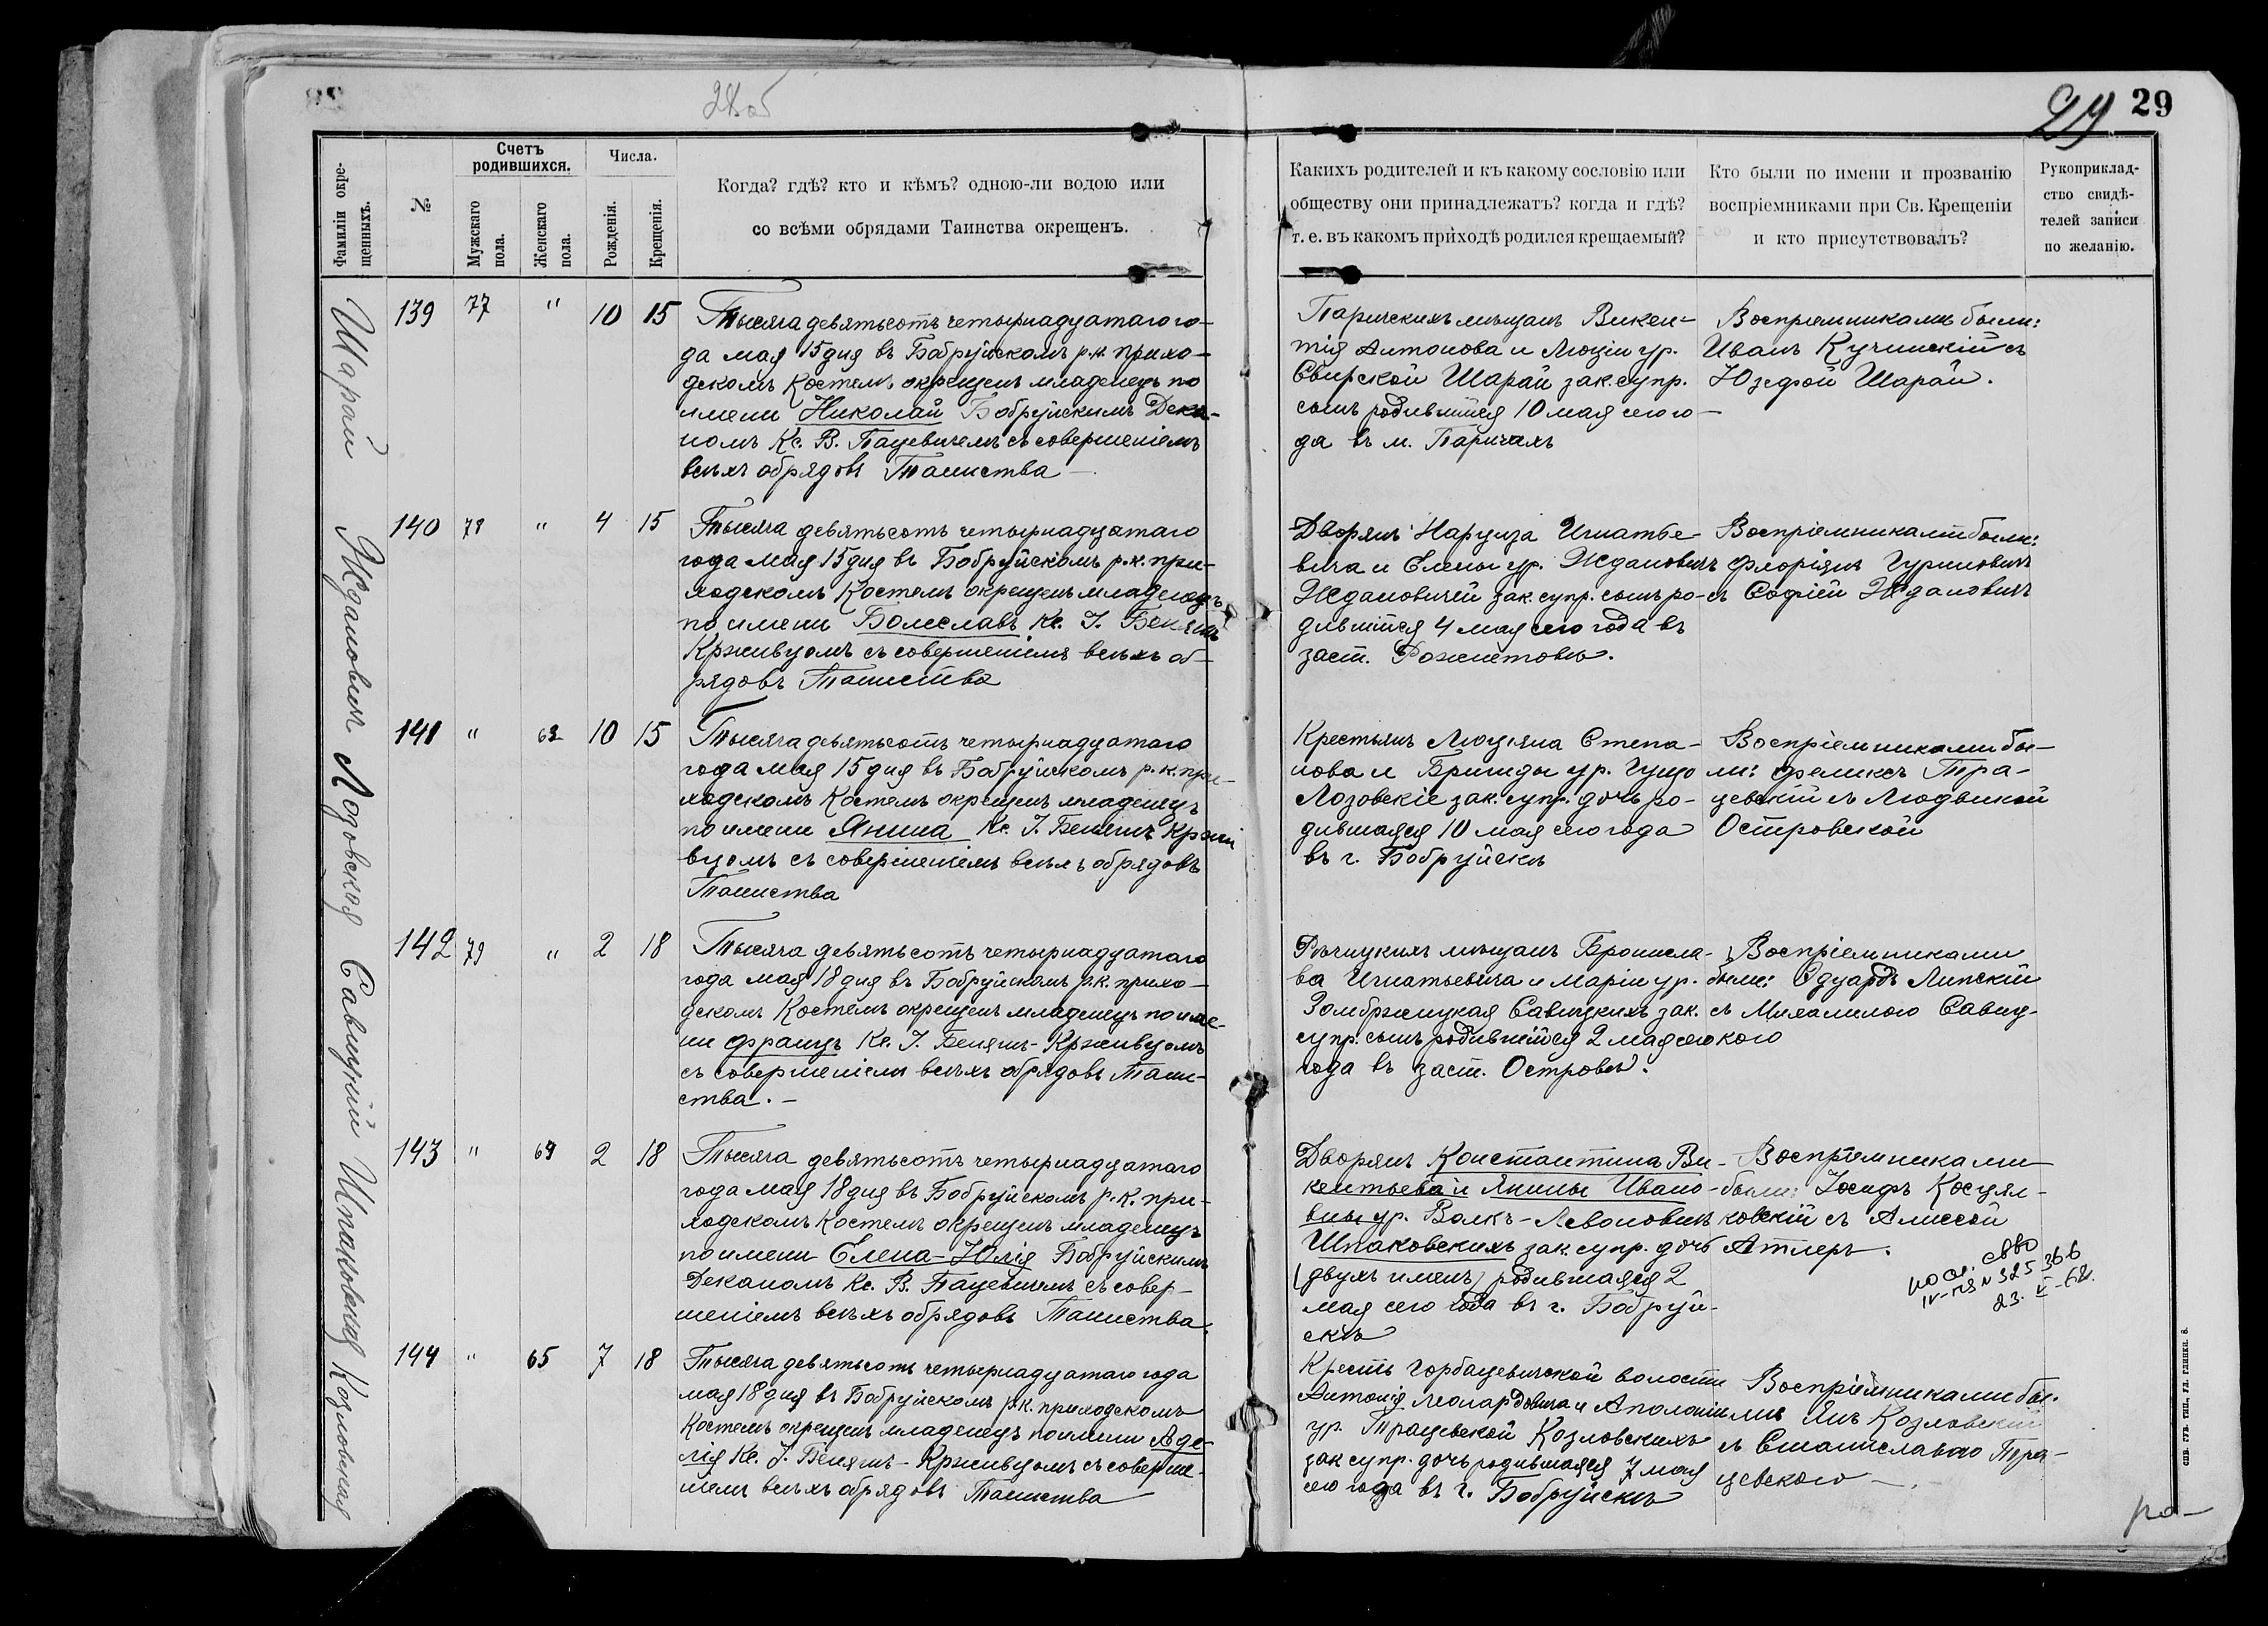 28об
29
29
Фамиліи окре-
щенныхъ.
№
Счетъ
родившихся.
Мужскаго
пола.
Женскаго
пола.
Числа.
Рожденія.
Крещенія.
Когда? гдѣ? кто и кѣмъ? одною-ли водою или
со всѣми обрядами Таинства окрещенъ.
Какихъ родителей и къ какому сословію или
обществу они принадлежатъ? когда и гдѣ?
т. е. въ какомъ приходѣ родился крещаемый?
Кто были по имени и прозванію
воспріемниками при Св. Крещеніи
и кто присутствовалъ?
Рукоприклад-
ство свидѣ-
телей записи
по желанію.
Шарай
139 77 " 10 15
Тысяча девятьсотъ четырнадцатаго го-
да мая 15 дня въ Бобруйскомъ р.к. прихо-
дскомъ Костелѣ окрещенъ младенецъ по
имени Николай Бобруйскимъ Дека-
номъ Кс. В. Пацевичемъ съ совершеніемъ
всѣхъ обрядовъ Таинства —
Паричскихъ мѣщанъ Викен-
тія Антонова и Люціи ур.
Сбирской Шарай зак. супр.
сынъ родившійся 10 мая сего го-
да въ м. Паричахъ
Воспріемниками были:
Иванъ Кучинскій съ
Юзефой Шарай.
Ждановичъ
140 78 " 4 15
Тысяча девятьсотъ четырнадцатаго
года мая 15 дня въ Бобруйскомъ р.к. при-
ходскомъ Костелѣ окрещенъ младенецъ
по имени Болеславъ Кс. І. Беняшъ
Крживцомъ съ совершеніемъ всѣхъ об-
рядовъ Таинства
Дворянъ Наруиза Игнатье-
вича и Елены ур. Ждановичъ
Ждановичей зак. супр. сынъ ро-
дившійся 4 мая сего года въ
заст. Рожнетовѣ.
Воспріемниками были:
Флоріянъ Гуриновичъ
съ Софіей Ждановичъ
Лозовская
141 " 63 10 15
Тысяча девятьсотъ четырнадцатаго
года мая 15 дня въ Бобруйскомъ р.к. при-
ходскомъ Костелѣ окрещенъ младенецъ
по имени Янина Кс. І. Беняшъ Кржи
вцомъ съ совершеніемъ всѣхъ обрядовъ
Таинства
Крестьянъ Люціяна Степа-
нова и Бригиды ур. Гуцо
Лозовскіе зак. супр. дочь ро-
дившаяся 10 мая сего года
въ г. Бобруйскѣ
Воспріемниками бы-
ли: Феликсъ Тра-
цевскій съ Людвикой
Островской
Савицкій
142 79 " 2 18
Тысяча девятьсотъ четырнадцатаго
года мая 18 дня въ Бобруйскомъ р.к. прихо-
дскомъ Костелѣ окрещенъ младенецъ по име-
ни Францъ Кс. І. Беняшъ-Крживцомъ
съ совершеніемъ всѣхъ обрядовъ Таин-
ства. —
Рѣчицкихъ мѣщанъ Бронисла-
ва Игнатьевича и Маріи ур.
Замбржицкая Савицкихъ зак.
супр. сынъ родившійся 2 мая сего
года въ заст. Островѣ.
Воспріемниками
были: Эдуардъ Липскій
съ Михалиною Савиц-
кою
Шпаковская
143 " 64 2 18
Тысяча девятьсотъ четырнадцатаго
года мая 18 дня въ Бобруйскомъ р.к. при-
ходскомъ Костелѣ окрещенъ младенецъ
по имени Елена-Юлія Бобруйскимъ
Деканомъ Кс. В. Пацевичемъ съ совер-
шеніемъ всѣхъ обрядовъ Таинства.
Дворянъ Константина Ви-
кентьева и Янины Ивано-
вны ур. Волкъ-Левоновичъ
Шпаковскихъ зак. супр. дочь
(двухъ именъ) родившаяся 2
мая сего года въ г. Бобруй-
скѣ
Воспріемниками
были: Іосифъ Косцял-
ковскій съ Алиссой
Атлеръ.
23. V-62.
Козловская
144 " 65 7 18
Тысяча девятьсотъ четырнадцатаго года
мая 18 дня въ Бобруйскомъ р.к. приходскомъ
Костелѣ окрещенъ младенецъ по имени Аде-
лія Кс. І. Беняшъ-Крживцомъ съ соверше-
ніемъ всѣхъ обрядовъ Таинства
Крестъ Горбацевичской волости
Антонія Леонардовича и Аполоніи
ур. Трацевской Козловскихъ
зак супр. дочь родившаяся 7 мая
сего года въ г. Бобруйскѣ
Воспріемниками бы-
ли Янъ Козловскій
съ Станиславою Тра-
цевского
ра-
спб. губ. тип., ул. глинки. 8.